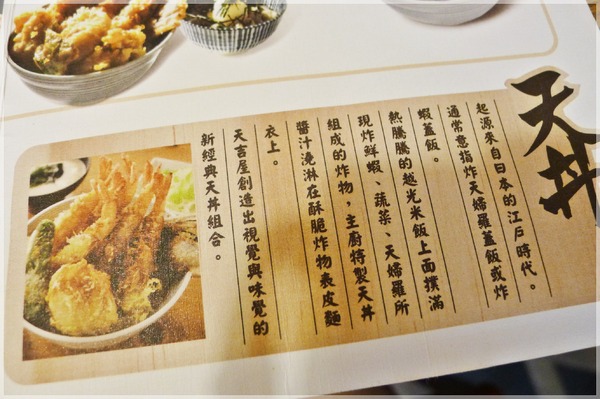 天丼
起源來自日本的江戶時代。
通常意指炸天婦羅蓋飯或炸
蝦蓋飯。
熱騰騰的越光米飯上面撲滿
現炸鮮蝦、蔬菜、天婦羅所
組成的炸物，主廚特製天丼
醬汁澆淋在酥脆炸物表皮麵
衣上。
天吉屋創造出視覺與味覺的
新經典天丼組合。